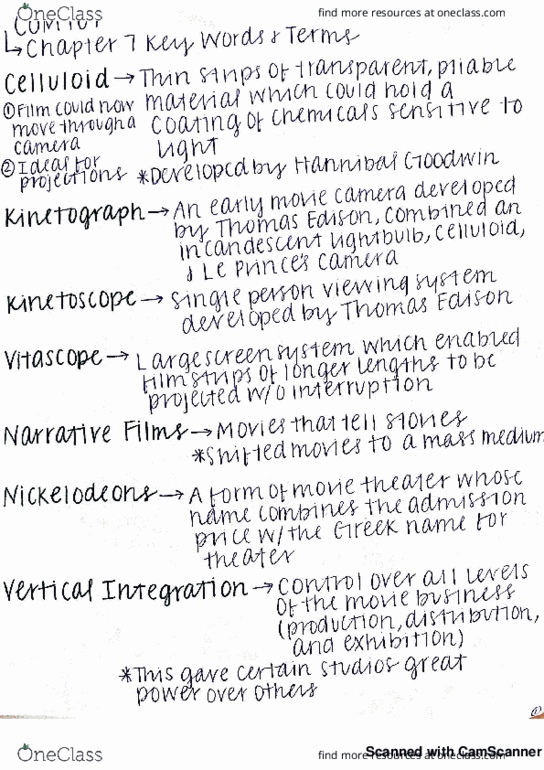 OneClass
find more resources at oneclass.com
↳Chapter 7 Key Words & Terms
Celluloid → Thin strips of transparent, pliable
material which could hold a
coating of chemicals sensitive to
light
① Film could now
move through a
camera
② Ideal for
projections
*Developed by Hannibal Goodwin
Kinetograph → An early movie camera developed
by Thomas Edison, combined an
incandescent lightbulb, celluloid,
& Le Prince's camera
Kinetoscope → Single person viewing system
developed by Thomas Edison
Vitascope → Large screen system which enabled
film strips of longer lengths to be
projected w/o interruption
Narrative Films → Movies that tell stories
*Shifted movies to a mass medium
Nickelodeons → A form of movie theater whose
name combines the admission
price w/ the Greek name for
theater
Vertical Integration → Control over all levels
of the movie business
(production, distribution,
and exhibition)
*This gave certain studios great
power over others
OneClass
find more resources at oneclass.com
Scanned with CamScanner